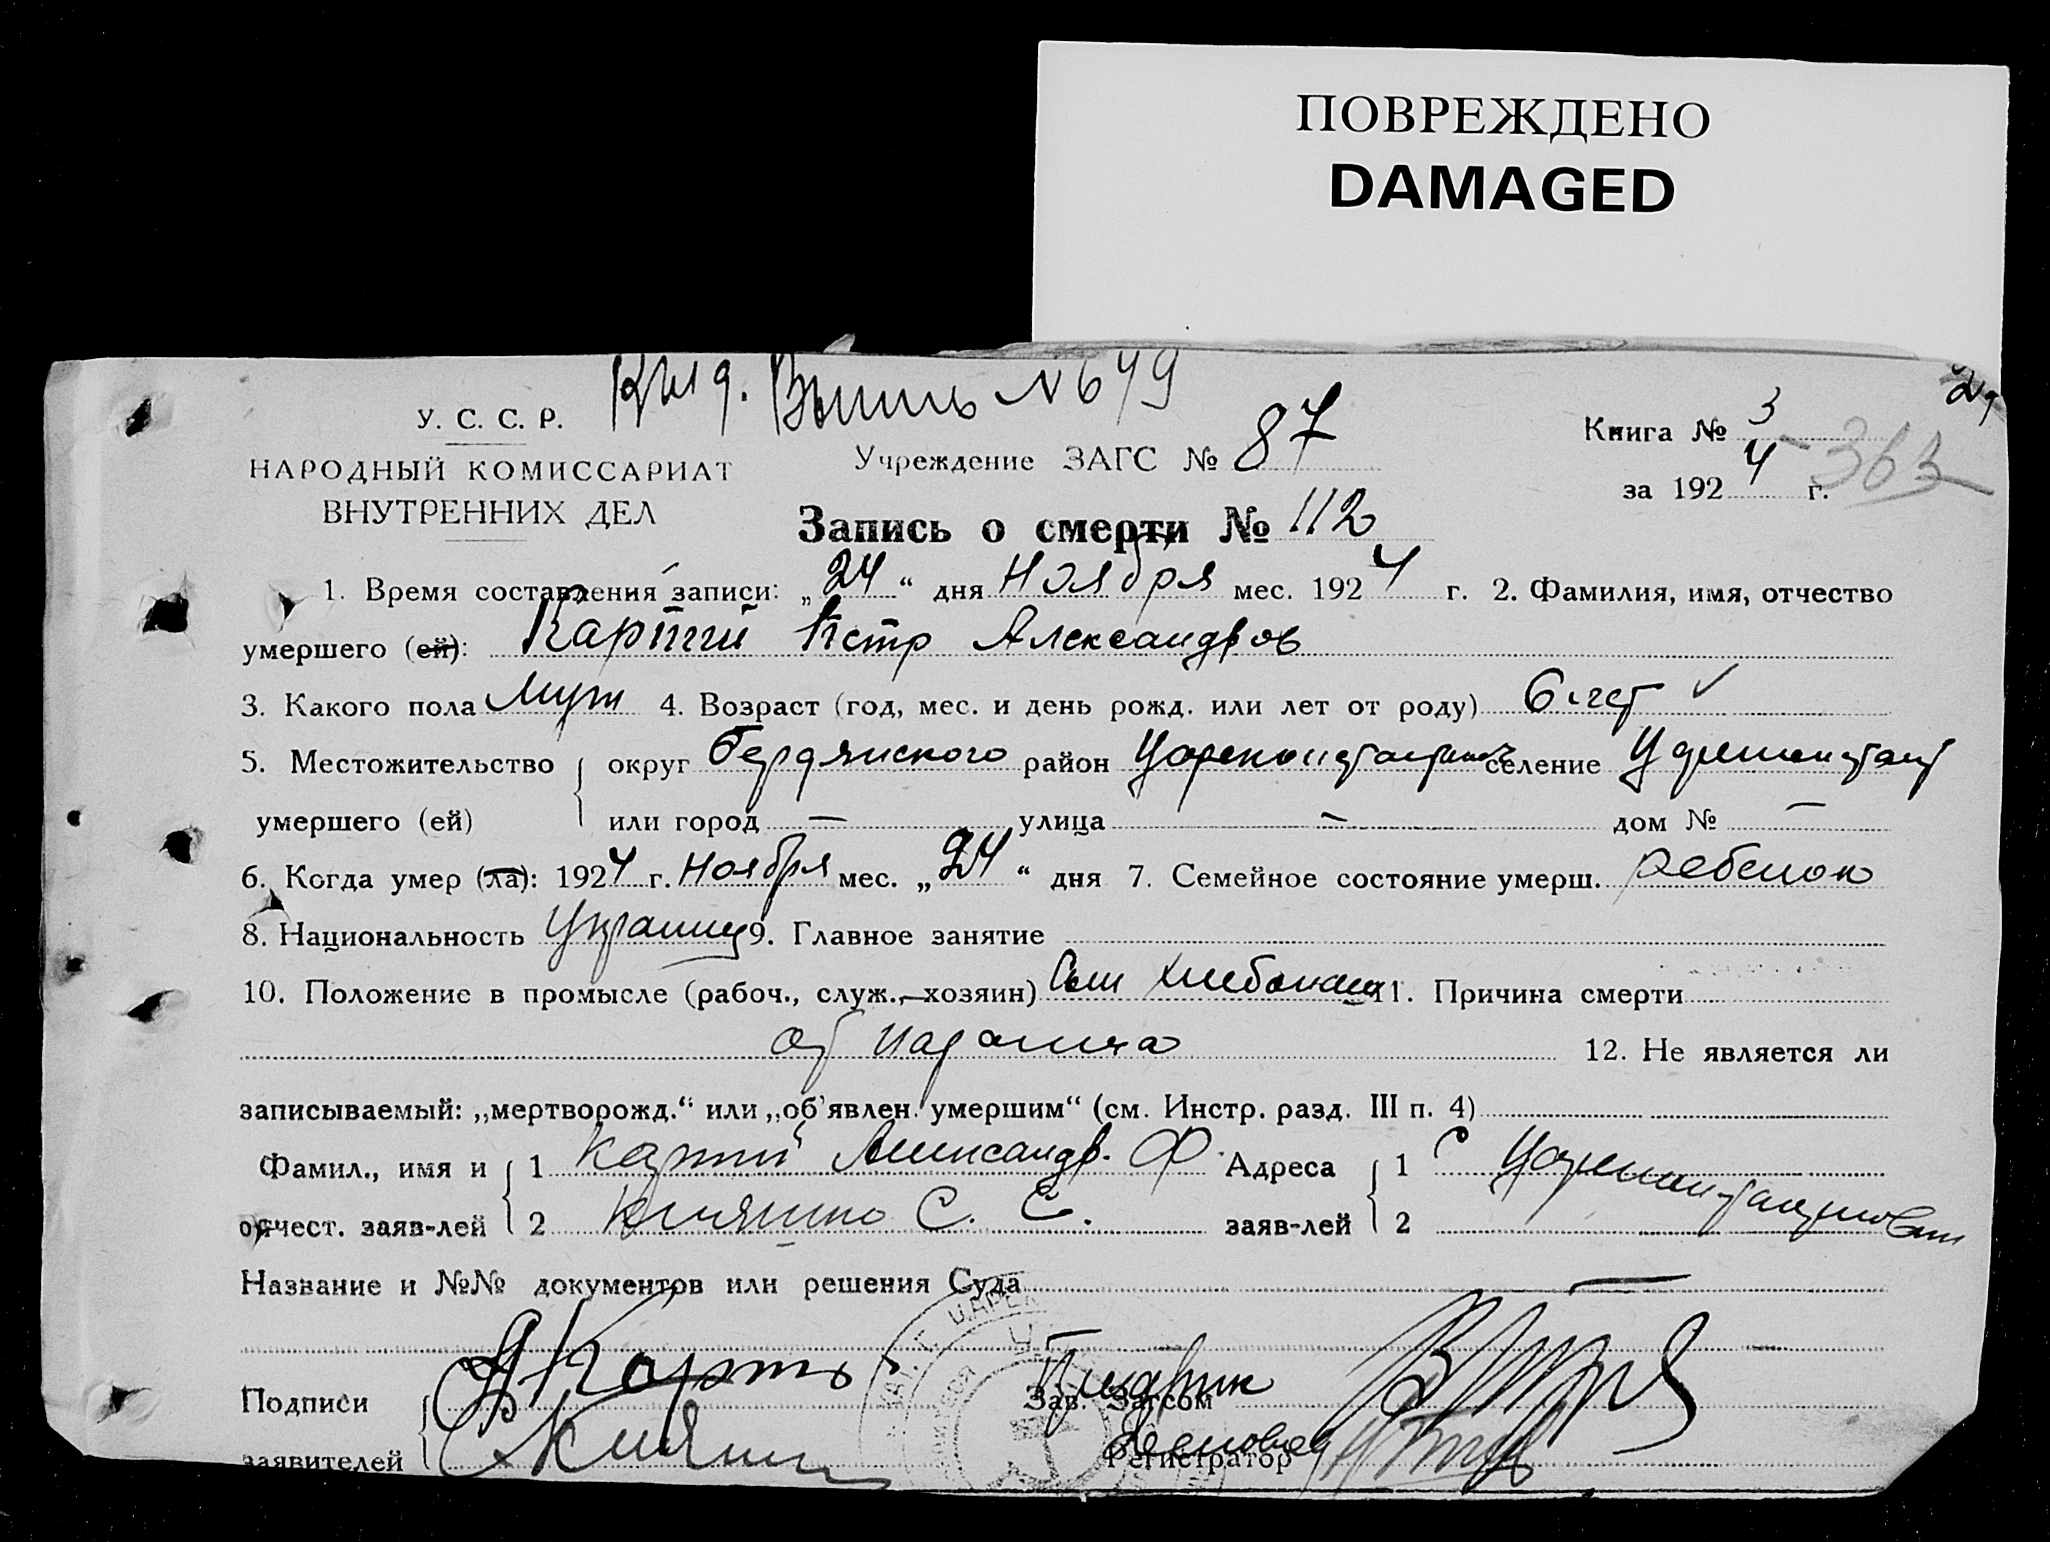 ПОВРЕЖДЕНО
DAMAGED
№ 679
29
У. С. С. Р.
НАРОДНЫЙ КОМИССАРИАТ
ВНУТРЕННИХ ДЕЛ
Учреждение ЗАГС № 87
Книга № 3
363
за 1924 г.
Запись о смерти № 112
1. Время составления записи: „24“ дня Ноября мес. 1924 г. 2. Фамилия, имя, отчество
умершего (ей): Картий Петр Александров
3. Какого пола Муж 4. Возраст (год, мес. и день рожд. или лет от роду) 6 лет
5. Местожительство округ Бердянского район Цареконстантинов селение Цареконстант
умершего (ей) или город — улица — дом № —
6. Когда умер (ла): 1924 г. Ноября мес. „24“ дня 7. Семейное состояние умерш. ребенок
8. Национальность Украинец 9. Главное занятие
10. Положение в промысле (рабоч., служ., хозяин) Сын хлебопашца 11. Причина смерти
от 12. Не является ли
записываемый: „мертворожд.“ или „об'явлен. умершим“ (см. Инстр. разд. III п. 4)
Фамил., имя и 1 Картий Александр. Ф. Адреса 1 С Цареконстантиновки
отчест. заяв-лей 2 С. С. заяв-лей 2
Название и №№ документов или решения Суда —
Подписи Зав. Загсом
заявителей Регистратор